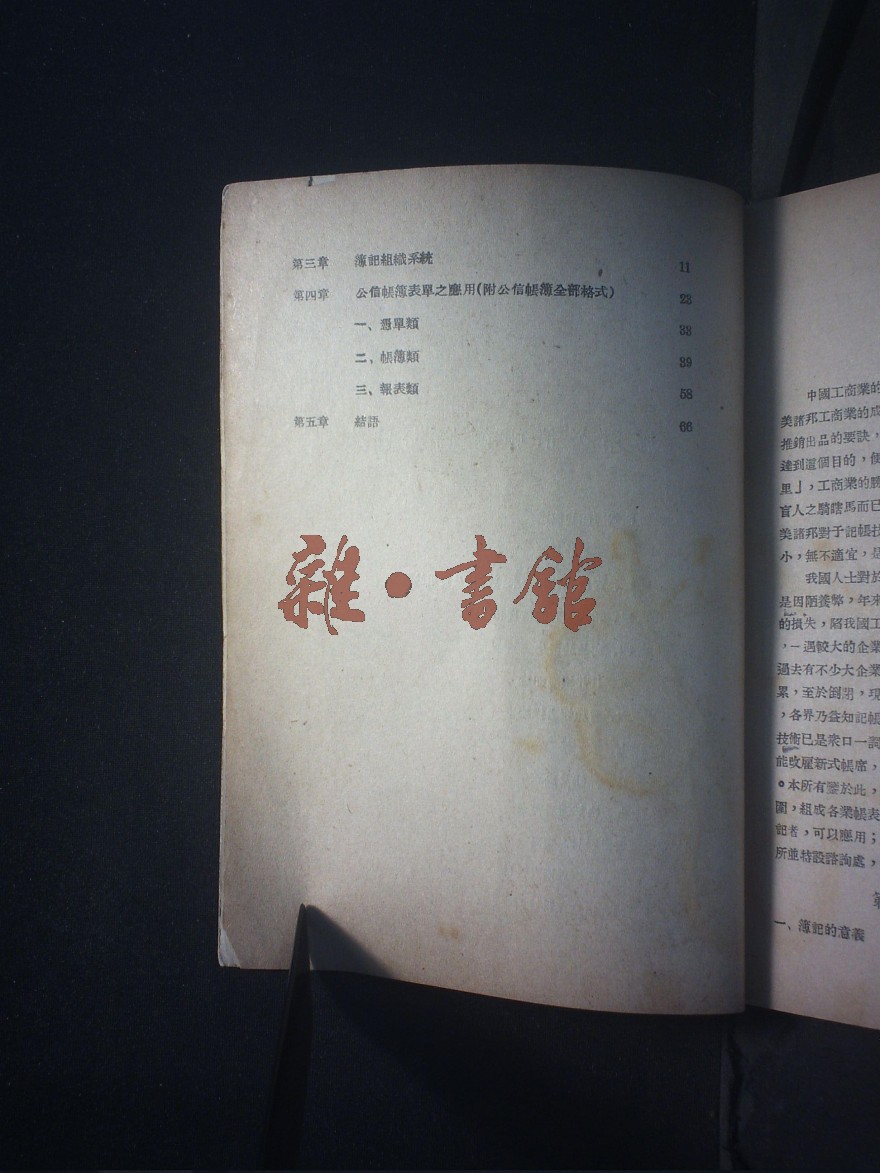 第三章 簿記組織系統 11
第四章 公信帳簿表單之應用(附公信帳簿全部格式) 23
一、憑單類 33
二、帳簿類 39
三、報表類 58
第五章 結語 66
雜·書館
中國工商業的
美諸邦工商業的成
推銷出品的要訣，
達到這個目的，使
里」，工商業的勝
盲人之騎瞎馬而已
美諸邦對于記帳技
小，無不適宜，是
我國人士對於
是因陋養弊，年來
的損失，陷我國工
，一遇較大的企業
過去有不少大企業
累，至於倒閉，現
，各界乃益知記帳
技術已是衆口一詞
能改雇新式帳席，
。本所有鑒於此，
圍，組成各業帳表
記者，可以應用；
所並特設諮詢處，
一、簿記的意義